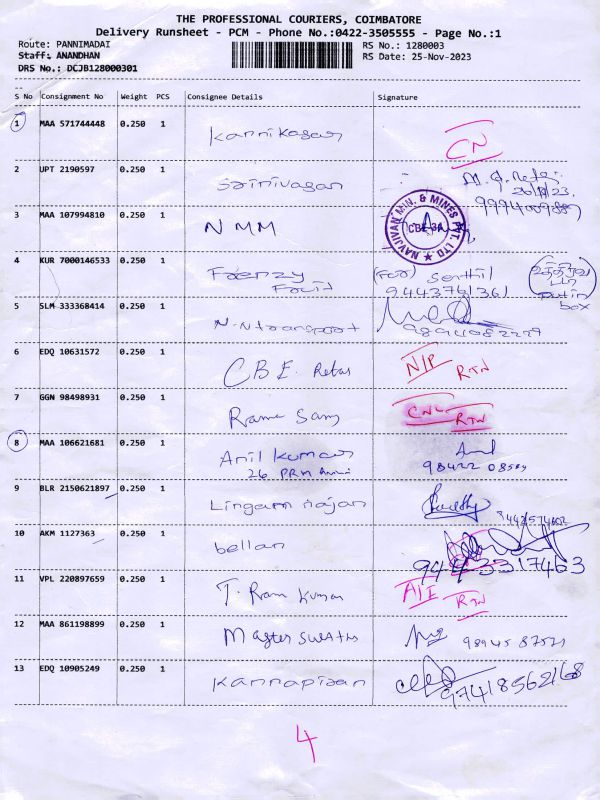 THE PROFESSIONAL COURIERS, COIMBATORE
Delivery Runsheet - PCM - Phone No.:0422-3505555 - Page No.:1
Route: PANNIMADAI RS No.: 1280003
Staff: ANANDHAN RS Date: 25-Nov-2023
DRS No.: DCJB128000301
S No Consignment No Weight PCS Consignee Details Signature
1 MAA 571744448 0.250 1 Kannikasar CN
2 UPT 2190597 0.250 1 Srinivasan
3 MAA 107994810 0.250 1 NMM NAVJIVAN MIN. & MINES PVT. LTD CBE-3A
4 KUR 7000146533 0.250 1 Faenzy Senthil
9443761361
put in
box
5 SLM 333368414 0.250 1 N.Ntransport
9894082229
6 EDQ 10631572 0.250 1 CBE. Retas N/P RTN
7 GGN 98498931 0.250 1 Rama Samy CN RTN
8 MAA 106621681 0.250 1 Anil Kumar
26. PRM 98422 08589
9 BLR 2150621897 0.250 1 Lingam rajan
10 AKM 1127363 0.250 1 bellan
9443317463
11 VPL 220897659 0.250 1 T. Ram Kumar A/I RTN
12 MAA 861198899 0.250 1 Master 98945 87521
13 EDQ 10905249 0.250 1 Kannapiran 97418562168
4